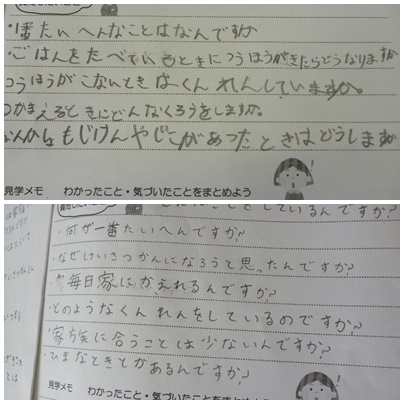 ・1番たいへんなことはなんですか
・ごはんをたべているときにつうほうがきたらどうなりますか
つうほうがこないときはくんれんしていますか。
つかまえるときにどんなくろうをしますか。
なんかもじけんやじこがあったときはどうしますか
見学メモ わかったこと・気づいたことをまとめよう
しているんですか?
・何が一番たいへんですか?
・なぜけいさつかんになろうと思ったんですか?
・毎日家にかえれるんですか?
・どのようなくんれんをしているのですか?
・家族に合うことは少ないんですか?
・ひまなときとかあるんですか?
見学メモ わかったこと・気づいたことをまとめよう